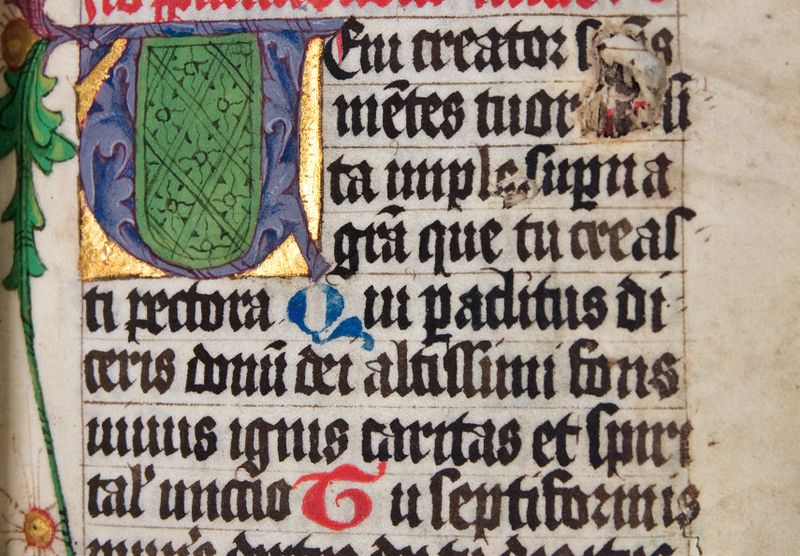 Veni creator sp̄s
mētes tuor
ta imple supna
grā que tu creas
ti pectora Qui paclitus di
ceris donū dei altissimi fons
uiuus ignis caritas et spiri
tal' unctio Tu septiformis